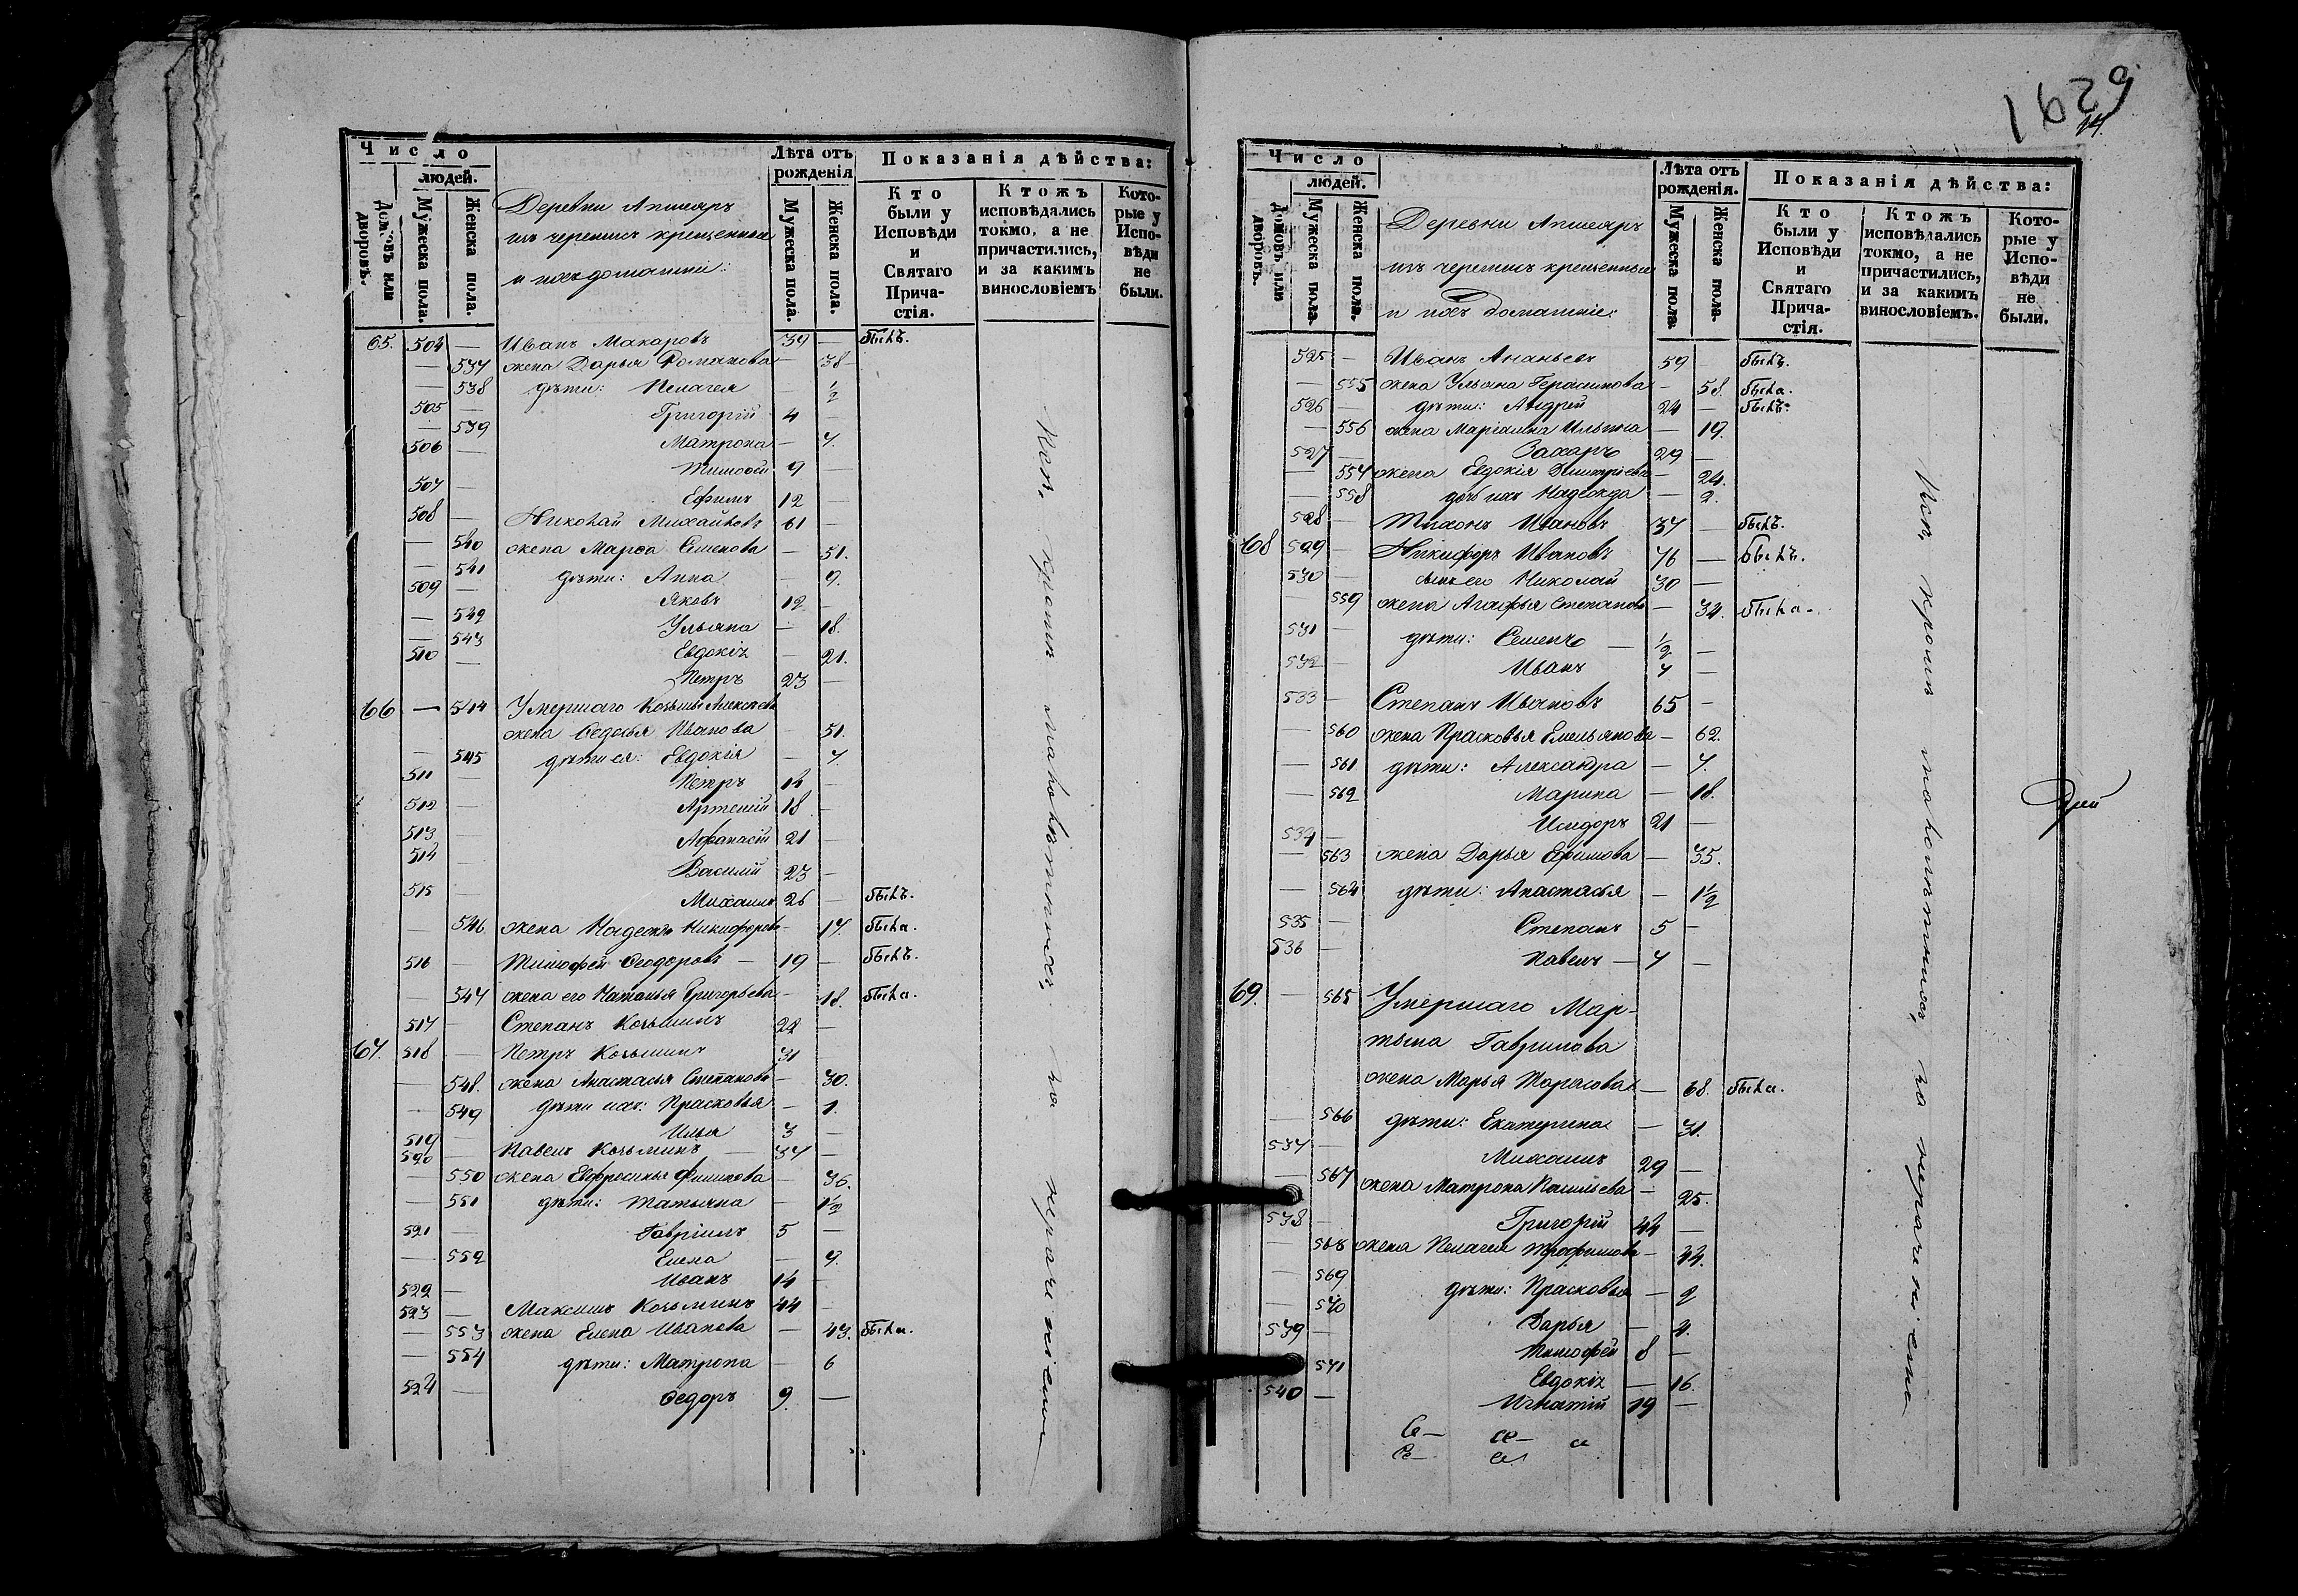 Число
людей.
Домовъ или дворовъ.
Мужеска пола.
Женска пола.
Деревни Апшеяръ
изъ черемисъ крещенныя
и ихъ домашніи:
Лѣта отъ рожденія
Мужеска пола.
Женска пола.
Показанія дѣйства:
Кто были у Исповѣди и Святаго Причастія.
Ктожъ исповѣдались токмо, а не причастились, и за какимъ винословіемъ
Которые у Исповѣди не были.
65. 504 — Иванъ Макаровъ 39 — былъ.
— 537 жена Дарья Романова — 38
— 538 дѣти: Пелагея — 1/2
505 — Григорій 4 —
— 539 Матрона — 7.
506 — Тимоѳей 9 —
507 — Ефимъ 12 —
508 — Николай Михайловъ 61 —
— 540 жена Марѳа Семенова — 51.
— 541 дѣти: Анна — 9.
509 — Яковъ 12 —
— 542 Ульяна — 18.
— 543 Евдокія — 21.
510 — Петръ 23 —
66 — 544 Умершаго Козьмы Алексѣева
жена Ѳедосья Иванова — 51.
— 545 дѣти ея: Евдокія — 7.
511 — Петръ 14 —
512 — Артемій 18 —
513 — Афанасій 21 —
514 — Василій 23 —
515 — Михаилъ 26 — былъ.
— 546 жена Надежда Никифорова — 17. была.
516 — Тимофей Ѳеодоровъ — 19 — былъ.
— 547 жена его Наталья Григорьева — 18. была.
517 — Степанъ Козьминъ 22 —
67. 518 — Петръ Козьминъ 31
— 548. жена Анастасья Степанова — 30.
— 549 дѣти ихъ: Прасковья — 1.
519 — Илья 3 —
520 — Павелъ Козьминъ — 37 —
— 550 жена Евфросинья Филипова — 36.
— 551 дѣти: Татьяна — 1 1/2
521 — Гавріилъ 5 —
— 552 Елена — 9.
522 — Иванъ 14 —
523 — Максимъ Козьминъ 44 —
— 553 жена Елена Иванова — 43. была.
— 554 дѣти: Матрона — 6
524 — Ѳедоръ 9. —
1629
Число
людей.
Домовъ или дворовъ.
Мужеска пола.
Женска пола.
Деревни Апшеяръ
изъ черемисъ крещенныя
и ихъ домашніе:
Лѣта отъ рожденія.
Мужеска пола.
Женска пола.
Показанія дѣйства:
Кто были у Исповѣди и Святаго Причастія.
Ктожъ исповѣдались токмо, а не причастились, и за какимъ винословіемъ.
Которые у Исповѣди не были.
525 — Иванъ Ананьевъ 59 былъ.
— 555 жена Ульяна Герасимова — 58. была.
526 — дѣти: Андрей 24 — былъ.
— 556 жена Ильина — 19.
527 — Захаръ 29 —
— 557 жена Евдокія Дмитріева — 24.
— 558 дочь ихъ Надежда — 2.
528 — Тихонъ Ивановъ 37 — былъ.
68 529 — Никифоръ Ивановъ 76 — былъ.
530 — сынъ его Николай 30 —
— 559 жена Агафья Степанова — 34. была.
531 — дѣти: Семенъ — 1/2 —
532 — Иванъ 7 —
533 — Степанъ Ивановъ 65 —
— 560 жена Прасковья Емельянова — 62.
— 561 дѣти: Александра — 7.
— 562 Марина — 18.
534 — Исидоръ 21 —
— 563 жена Дарья Ефимова — 35.
— 564 дѣти: Анастасья — 1 1/2
535 — Степанъ 5 —
536 — Павелъ — 7 —
69. — 565 Умершаго Мар-
тына Гаврилова
жена Марья Тарасова — 68. была.
— 566 дѣти: Екатерина — 31.
537 — Михаилъ 29 —
— 567 жена Матрона Васильева — 25.
538 — Григорій 44 —
— 568 жена Пелагея Трофимова — 44.
— 569 дѣти: Прасковья — 2
— 570 Дарья — 4.
539 — Тимофей 8 —
— 571 Евдокія — 16.
540 — Игнатій 19 —